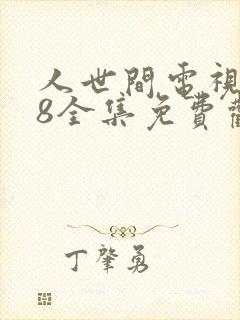 人世間電視
8全集免費
丁肇勇